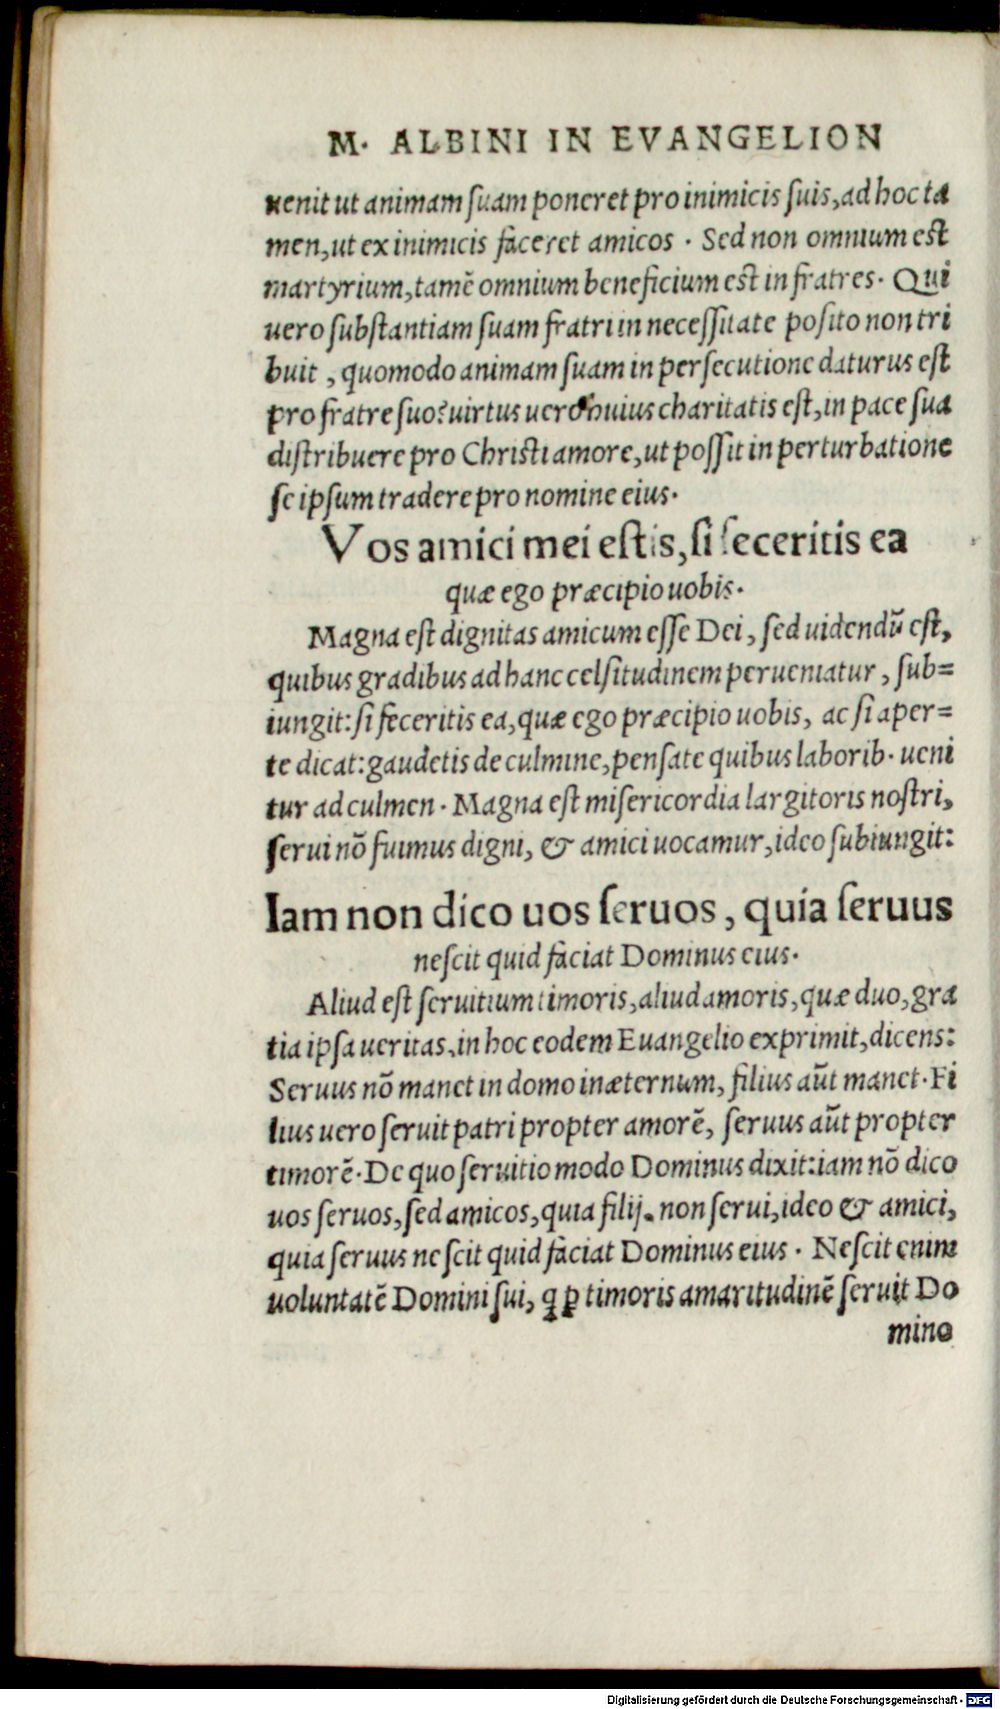 M. ALBINI IN EVANGELION
uenit ut animam suam poneret pro inimicis suis, ad hoc ta
men, ut ex inimicis faceret amicos . Sed non omnium est
martyrium, tamē omnium beneficium est in fratres. Qui
uero substantiam suam fratri in necessitate posito non tri
buit , quomodo animam suam in persecutione daturus est
pro fratre suo? uirtus uero huius charitatis est, in pace sua
distribuere pro Christi amore, ut possit in perturbatione
se ipsum tradere pro nomine eius.
Vos amici mei estis, si feceritis ea
quæ ego præcipio uobis.
Magna est dignitas amicum esse Dei, sed uidendū est,
quibus gradibus ad hanc celsitudinem perueniatur, sub=
iungit: si feceritis ea, quæ ego præcipio uobis, ac si aper=
te dicat: gaudetis de culmine, pensate quibus laborib. ueni
tur ad culmen. Magna est misericordia largitoris nostri,
serui nō fuimus digni, & amici uocamur, ideo subiungit:
Iam non dico uos seruos, quia seruus
nescit quid faciat Dominus eius.
Aliud est seruitium timoris, aliud amoris, quæ duo, gra
tia ipsa ueritas, in hoc eodem Euangelio exprimit, dicens:
Seruus nō manet in domo in æternum, filius aūt manet. Fi
lius uero seruit patri propter amorē, seruus aūt propter
timorē. De quo seruitio modo Dominus dixit: iam nō dico
uos seruos, sed amicos, quia filij. non serui, ideo & amici,
quia seruus nescit quid faciat Dominus eius . Nescit enim
uoluntatē Domini sui, q ꝑ timoris amaritudinē seruit Do
mino
Digitalisierung gefördert durch die Deutsche Forschungsgemeinschaft - DFG